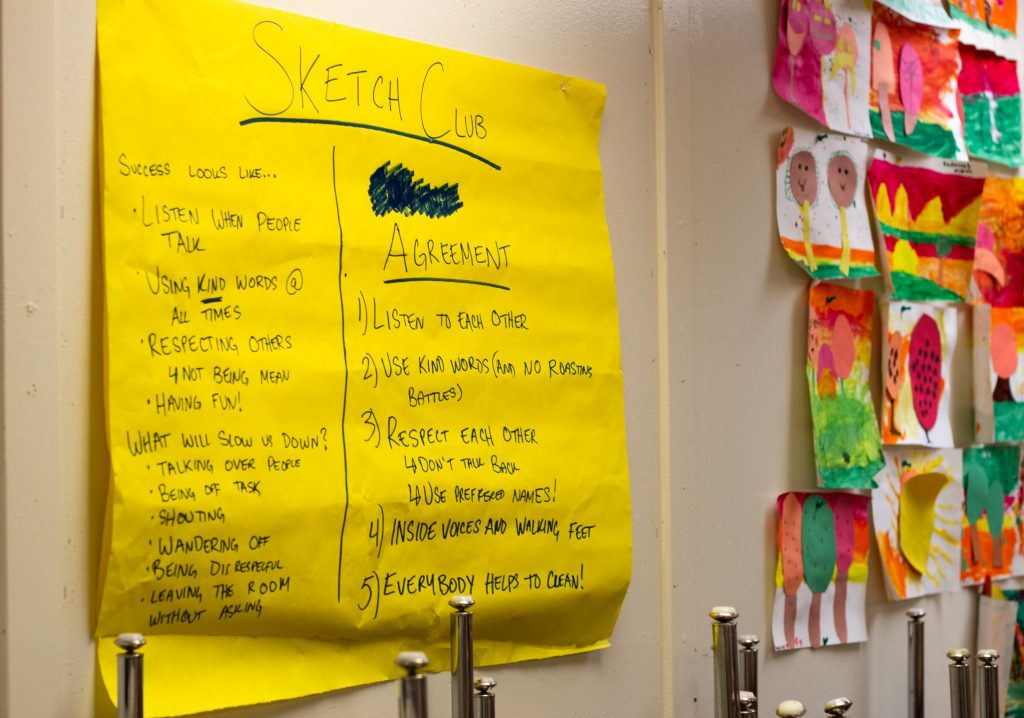 SKETCH CLUB
SUCCESS LOOKS LIKE...
· LISTEN WHEN PEOPLE
TALK
· USING KIND WORDS @
ALL TIMES
· RESPECTING OTHERS
↳ NOT BEING MEAN
· HAVING FUN!
WHAT WILL SLOW US DOWN?
· TALKING OVER PEOPLE
· BEING OFF TASK
· SHOUTING
· WANDERING OFF
· BEING DISRESPECFUL
· LEAVING THE ROOM
WITHOUT ASKING
AGREEMENT
1) LISTEN TO EACH OTHER
2) USE KIND WORDS (AND NO ROASTING
BATTLES)
3) RESPECT EACH OTHER
↳ DON'T TALK BACK
↳ USE PREFFERED NAMES!
4) INSIDE VOICES AND WALKING FEET
5) EVERYBODY HELPS TO CLEAN!